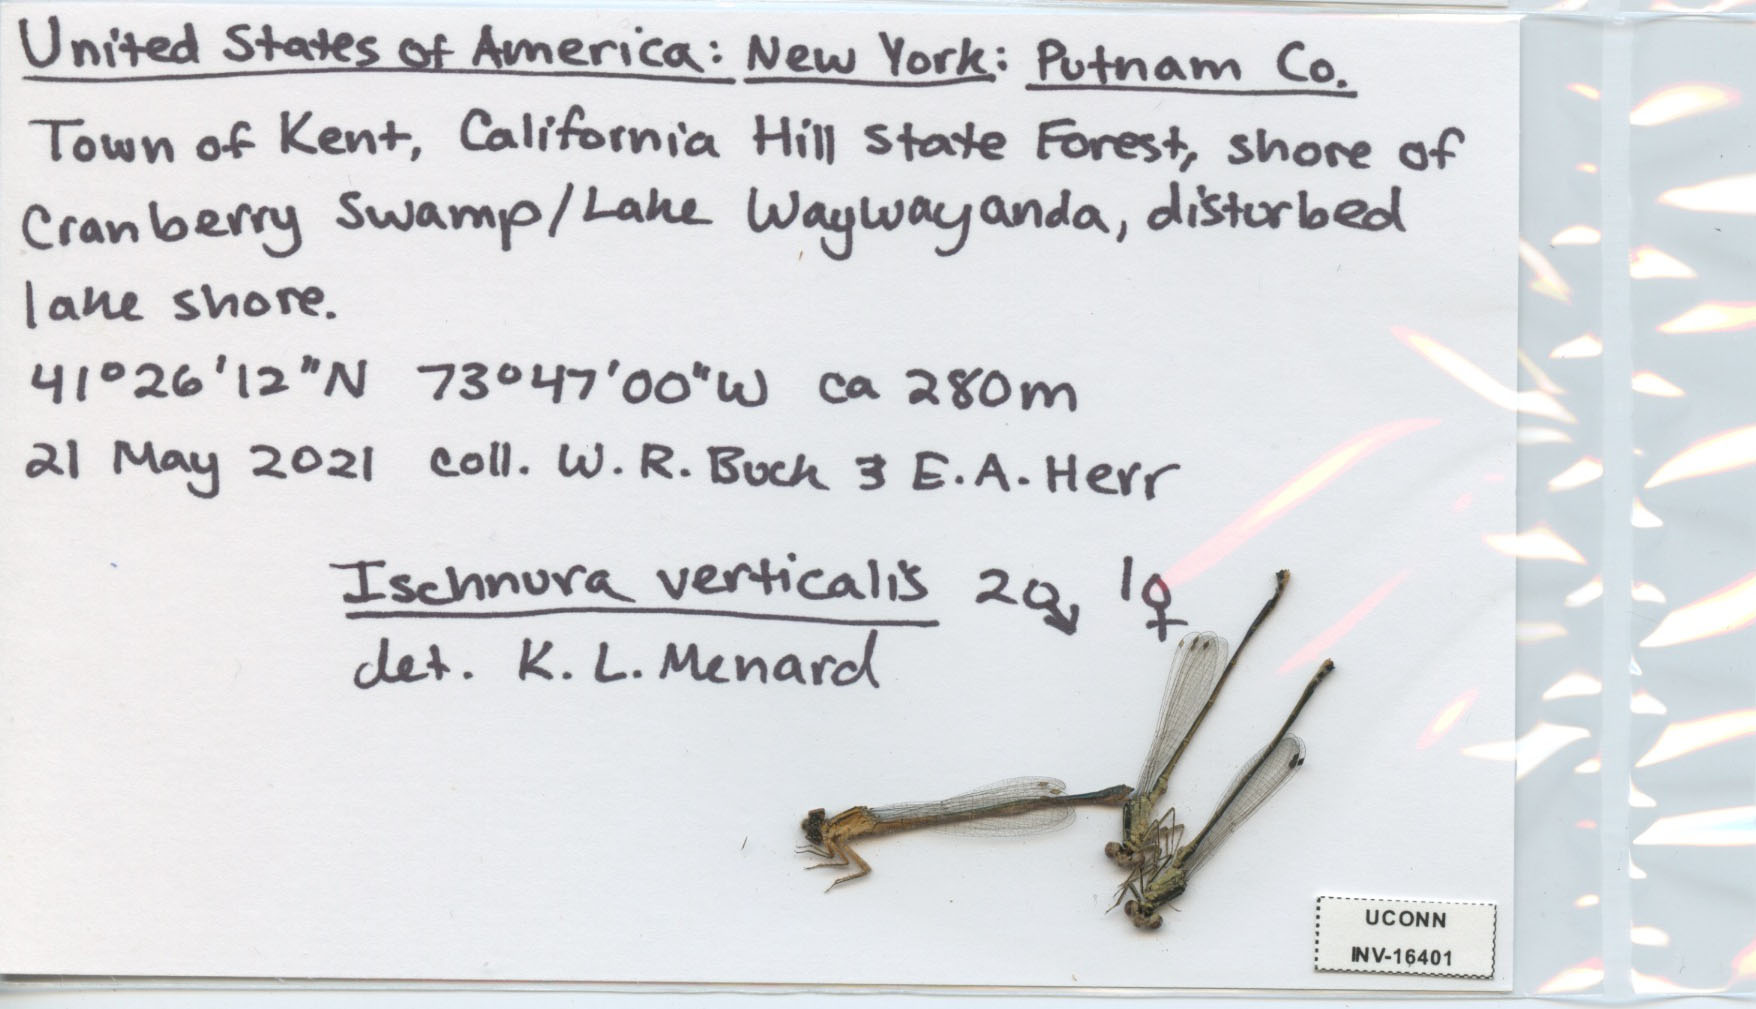 United States of America: New York: Putnam Co.
Town of Kent, California Hill State Forest, shore of
Cranberry Swamp/Lake Waywayanda, disturbed
lake shore.
41°26'12"N 73°47'00"W ca 280m
21 May 2021 coll. W. R. Buck & E. A. Herr
Ischnura verticalis 2♂ 1♀
det. K. L. Menard
UCONN
INV-16401